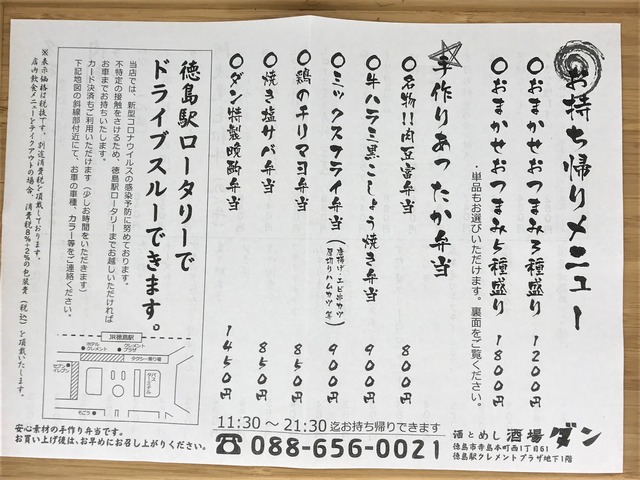 お持ち帰りメニュー
○おまかせおつまみ3種盛り 1200円
○おまかせおつまみ5種盛り 1800円
・単品もお選びいただけます。裏面をご覧ください。
手作りあったか弁当
○名物!!肉豆富弁当 800円
○牛ハラミ黒こしょう焼き弁当 900円
○ミックスフライ弁当(唐揚げ・エビ串カツ 厚切りハムカツ 等) 900円
○鶏のチリマヨ弁当 850円
○焼き塩サバ弁当 850円
○ダン特製晩酌弁当 1450円
徳島駅ロータリーで
ドライブスルーできます。
当店では、新型コロナウイルスの感染予防に努めております。
不特定の接触をさけるため、徳島駅ロータリーまでお越しいただければ
お車までお持ちいたします。
カード決済もご利用いただけます(少しお時間をいただきます)
下記地図の斜線部付近にて、お車の車種、カラー等をご連絡ください。
JR徳島駅
ホテル
クレメント
クレメント
プラザ
タクシー乗り場
セブン
イレブン
バス
ターミナル
もごう
※表示価格は税抜です。別途消費税を頂戴しております。
店内飲食メニューをテイクアウトの場合、消費税8%+2%の包装費(税込)を頂戴いたします。
安心素材の手作り弁当です。
お買い上げ後は、お早めにお召し上がりください。
11:30～21:30 迄お持ち帰りできます
☎088-656-0021
酒とめし 酒場ダン
徳島市寺島本町西1丁目61
徳島駅クレメントプラザ地下1階